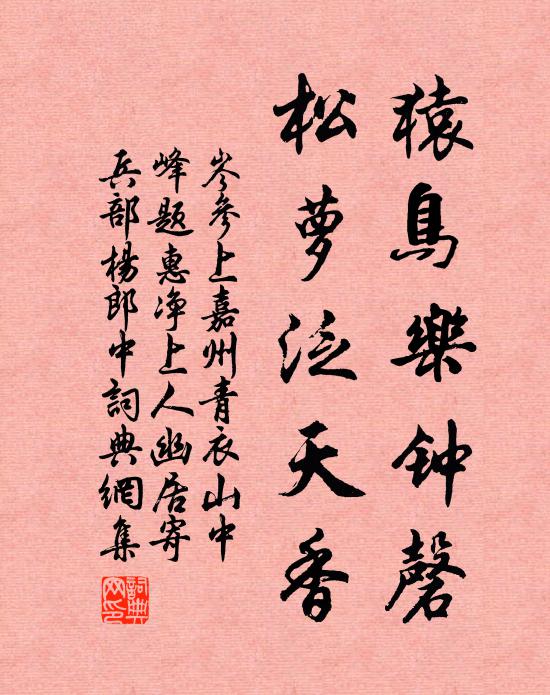 猿鳥樂钟磬
松萝泛天香
岑參上嘉州青衣山中
峰題惠净上人幽居寄
兵部楊郎中詞典網集
詞典
网印